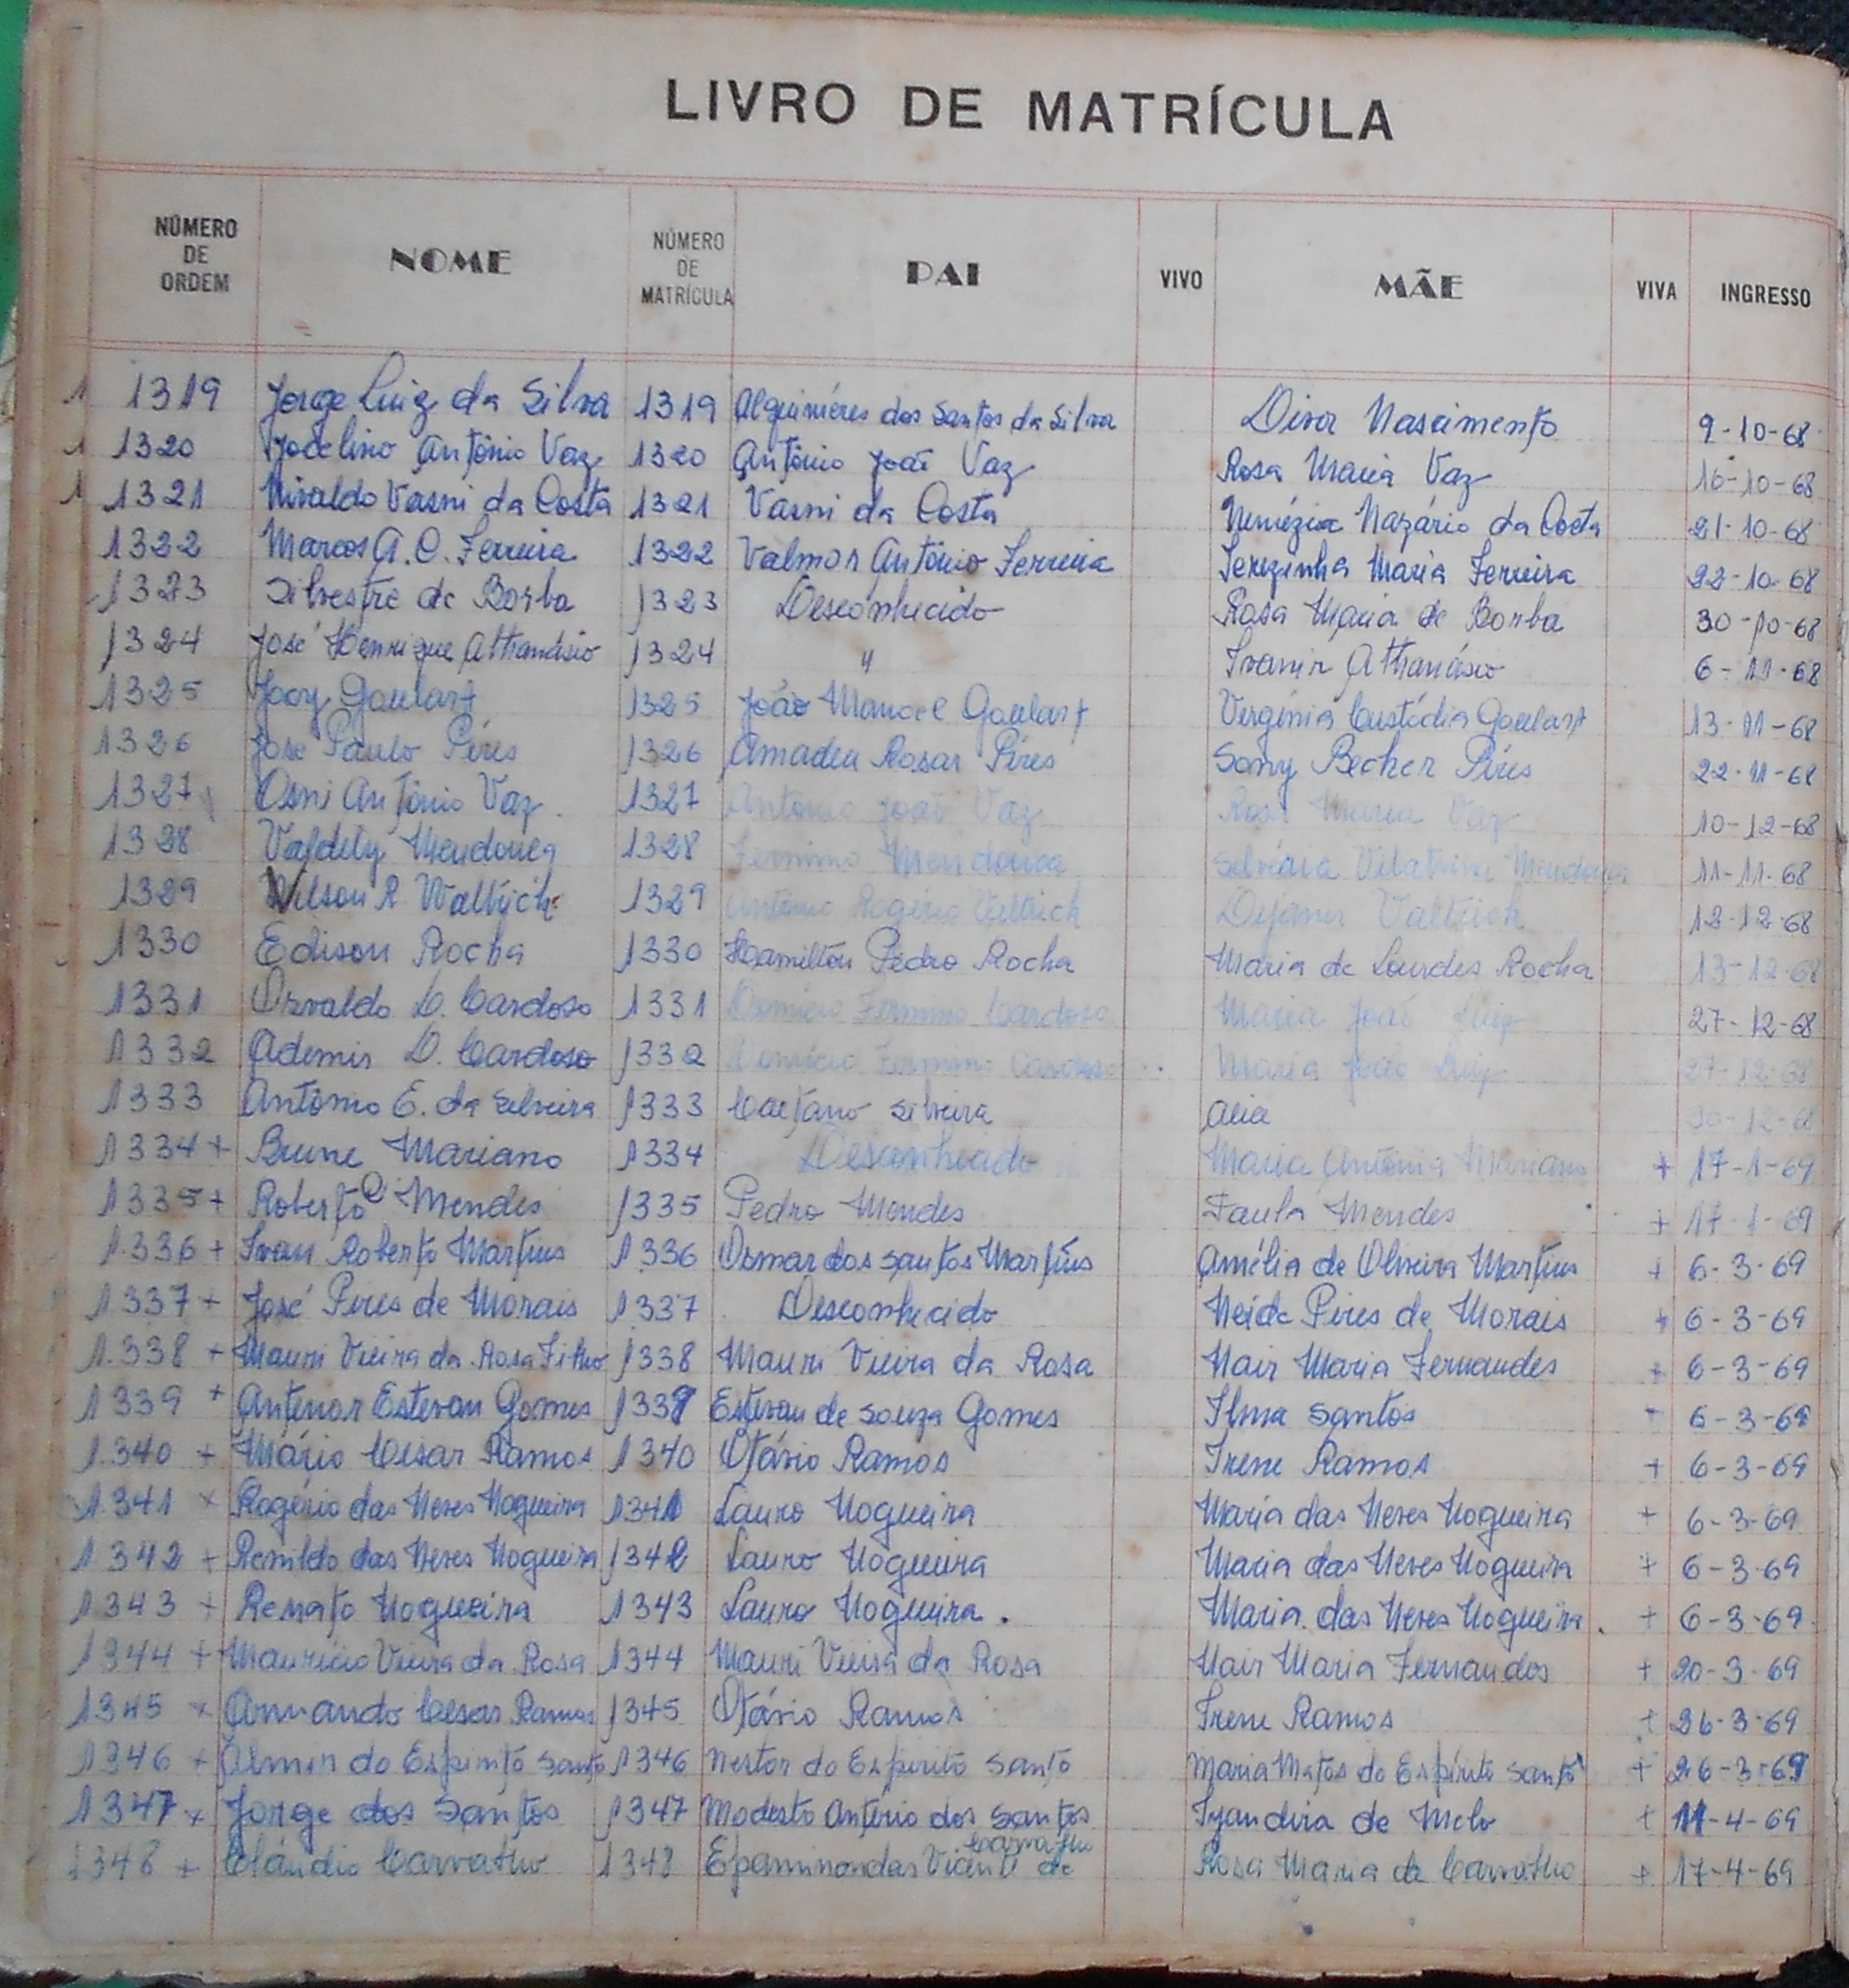 LIVRO DE MATRÍCULA
NÚMERO DE ORDEM NOME NÚMERO DE MATRÍCULA PAI VIVO MÃE VIVA INGRESSO
1 1319 Jorge Luiz da Silva 1319 dos Santos da Silva Diva Nascimento 9-10-68
1 1320 Jocelino Antônio Vaz 1320 Antônio João Vaz Rosa Maria Vaz 16-10-68
1 1321 Nivaldo Vasni da Costa 1321 Vasni da Costa Nemézia Nazário da Costa 21-10-68
1322 Marcos A. C. Ferreira 1322 Valmor Antônio Ferreira Terezinha Maria Ferreira 22-10-68
1323 Silvestre de Borba 1323 Desconhecido Rosa Maria de Borba 30-10-68
1324 José Henrique Athanásio 1324 " Ivanir Athanásio 6-11-68
1325 Jocy Goulart 1325 João Manoel Goulart Vergínia Custódia Goulart 13-11-68
1326 José Paulo Pires 1326 Amadeu Rosar Pires Sony Becher Pires 22-11-68
1327 Osni Antônio Vaz 1327 Antônio João Vaz Rosa Maria Vaz 10-12-68
1328 Valdely Mendonça 1328 Fermino Mendonça Mendonça 11-11-68
1329 Wilson R 1329 Antônio Rogério Dejanir 12-12-68
1330 Edison Rocha 1330 Hamilton Pedro Rocha Maria de Lourdes Rocha 13-12-68
1331 Osvaldo D. Cardoso 1331 Domício Fermino Cardoso Maria João Luiz 27-12-68
1332 Ademir D. Cardoso 1332 Domício Fermino Cardoso Maria João Luiz 27-12-68
1333 Antônio C. da Silveira 1333 Caetano Silveira 30-12-68
1334 + Brune Mariano 1334 Desconhecido Maria Antônia Mariano + 17-1-69
1335 + Roberto Mendes 1335 Pedro Mendes Paula Mendes + 17-1-69
1.336 + Ivan Roberto Martins 1336 Osmar dos Santos Martins Amélia de Oliveira Martins + 6-3-69
1.337 + José Pires de Morais 1337 Desconhecido Neide Pires de Morais + 6-3-69
1.338 + Mauri Vieira da Rosa Filho 1338 Mauri Vieira da Rosa Nair Maria Fernandes + 6-3-69
1339 + Antenor Estevan Gomes 1339 Estevan de Souza Gomes Ilma Santos + 6-3-69
1.340 + Mário Cesar Ramos 1340 Otávio Ramos Irene Ramos + 6-3-69
1.341 × Rogério das Neves Nogueira 1341 Lauro Nogueira Maria das Neves Nogueira + 6-3-69
1342 + Renildo das Neves Nogueira 1342 Lauro Nogueira Maria das Neves Nogueira + 6-3-69
1343 + Renato Nogueira 1343 Lauro Nogueira . Maria das Neves Nogueira . + 6-3-69
1344 + Maurício Vieira da Rosa 1344 Mauri Vieira da Rosa Nair Maria Fernandes + 20-3-69
1345 × Armando Cesar Ramos 1345 Otávio Ramos Irene Ramos + 26-3-69
1346 + Almir do Espirito Santo 1346 Nestor do Espirito Santo Maria Matos do Espírito Santo + 26-3-69
1347 × Jorge dos Santos 1347 Modesto Antério dos Santos de Melo + 11-4-69
1348 + Cláudio Carvalho 1348 Epaminondas Vicente de Carvalho Rosa Maria de Carvalho + 17-4-69